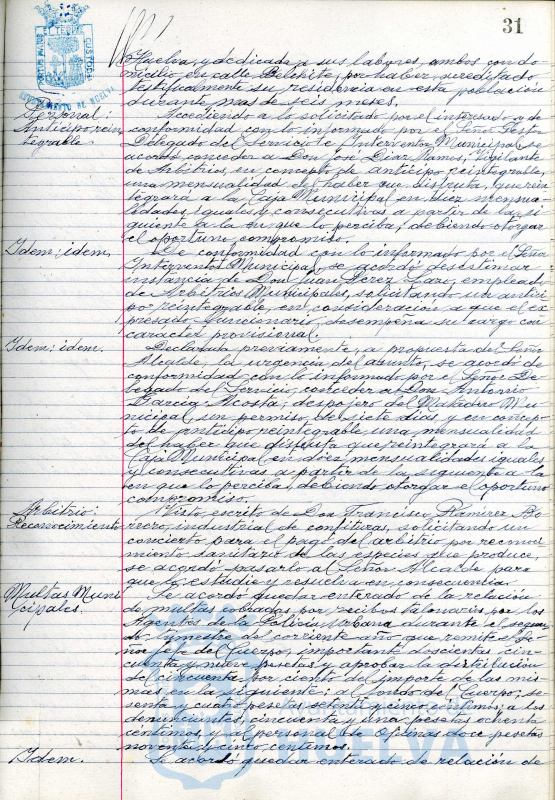 31
Huelva, y dedicada a sus labores, ambos con do-
micilio en calle Belchite, por haber acreditado
testificalmente su residencia en esta población
durante mas de seis meses.
Personal:
Anticipo rein
tegrable.
Accediendo a lo solicitado por el interesado y de
conformidad con lo informado por el Señor Gestor
Delegado del Servicio e Interventor Municipal, se
acordó conceder a Don José Diaz Ramos, Vigilante
de Arbitrios, en concepto de anticipo reintegrable,
una mensualidad del haber que disfruta, que rein
tegrará a la Caja Municipal en diez mensua-
lidades iguales y consecutivas a partir de la si-
guiente a la en que lo perciba; debiendo otorgar
el oportuno compromiso.
Idem: idem.
De conformidad con lo informado por el Señor
Interventor Municipal, se acordó desestimar
instancia de Don Juan Perez, empleado
de Arbitrios Municipales, solicitando un antici
po reintegrable, en consideración a que el ex
presado funcionario desempeña su cargo con
caracter provisional.
Idem: idem.
Declarada previamente, a propuesta del Señor
Alcalde, la urgencia del asunto, se acordó de
conformidad con lo informado por el Señor De-
legado del Servicio, conceder a Don Antonio
Garcia Acosta, despojero del Matadero Mu-
nicipal, un permiso de siete dias y en concep
to de anticipo reintegrable una mensualidad
del haber que disfruta que reintegrará a la
Caja Municipal en diez mensualidades iguales
y consecutivas a partir de la siguiente a la
en que lo perciba, debiendo otorgar el oportuno
compromiso.
Arbitrio:
Reconocimiento
Visto escrito de Don Francisco Ramirez Bo-
rrero, industrial de confituras, solicitando un
concierto para el pago del arbitrio por reconoci
miento sanitario de las especies que produce,
se acordó pasarlo al Señor Alcalde para
que lo estudie y resuelva en consecuencia.
Multas Muni
cipales.
Se acordó quedar enterado de la relación
de multas cobradas por recibos talonarios por los
Agentes de la Policia Urbana durante el segun
do trimestre del corriente año que remite el Se-
ñor Jefe del Cuerpo, importante doscientas cin-
cuenta y nueve pesetas y aprobar la distribución
del cincuenta por ciento del importe de las mis
mas en la siguiente: al fondo del Cuerpo, se-
senta y cuatro pesetas setenta y cinco céntimos; a los
denunciantes, cincuenta y una pesetas ochenta
céntimos, y al personal de Oficinas doce pesetas
noventa y cinco centimos.
Idem.
Se acordó quedar enterado de relación de